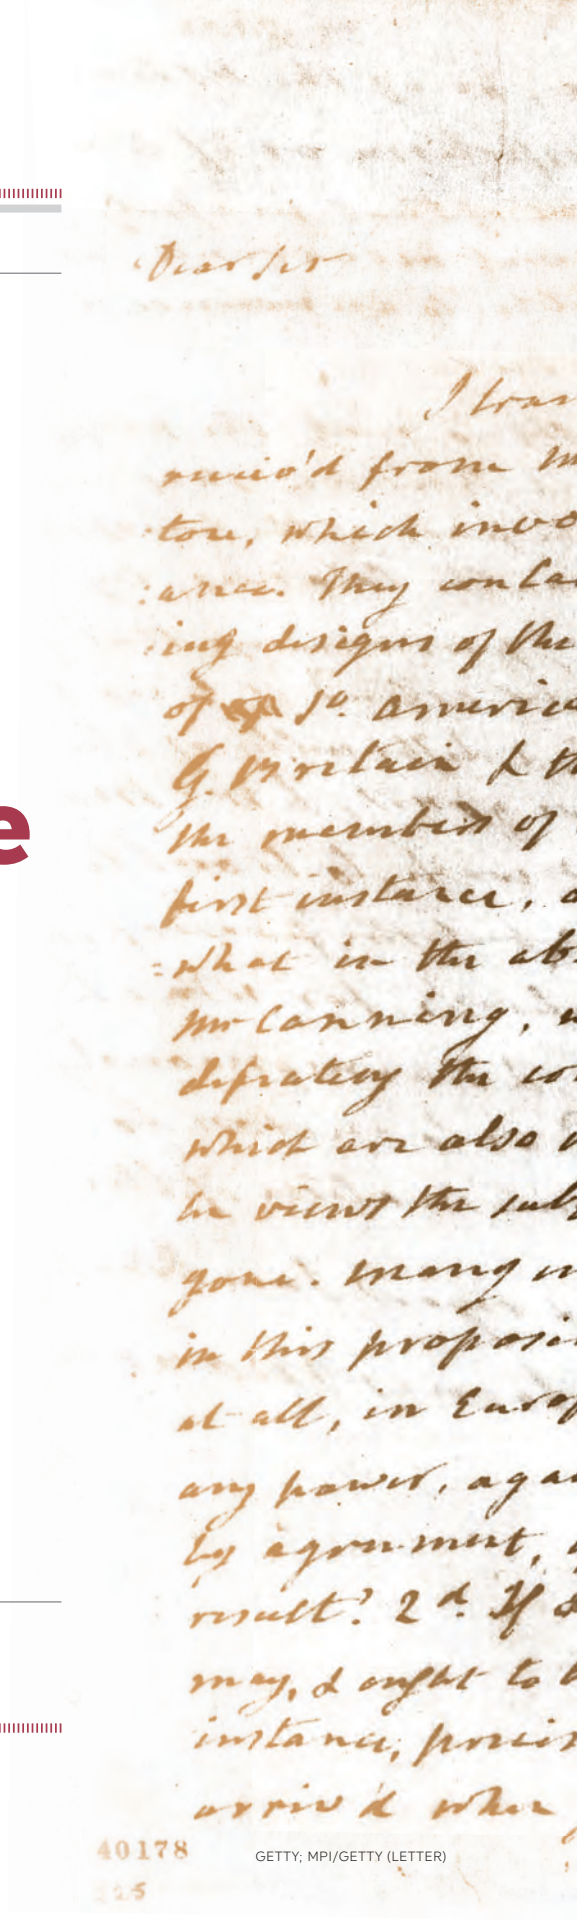 Dear Sir
I tran
receiv'd from M
ton, which invo
ance. They conta
ing designs of the
of So. America
G. Britain & th
the members of
first instance, a
=what in the ab
Mr Canning, w
definitely the co
which are also
he views the sub
gone. Many
in this proposi
at all, in Europ
any power, aga
by agreement,
result? 2d. If
may, & ought to
instance, precis
arriv'd when
e
40178
GETTY; MPI/GETTY (LETTER)